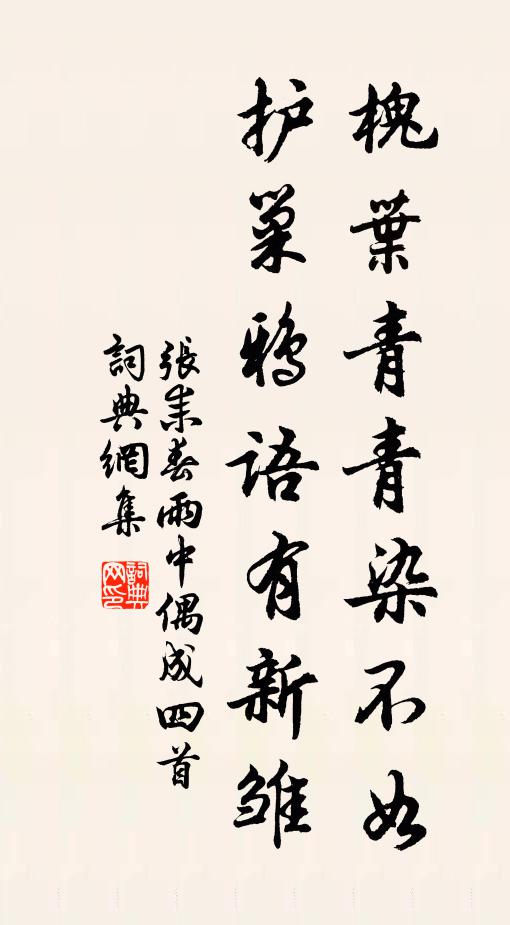 槐葉青青染不如
护巢鸦语有新雏
張耒春雨中偶成四首
詞典網集
詞典网印